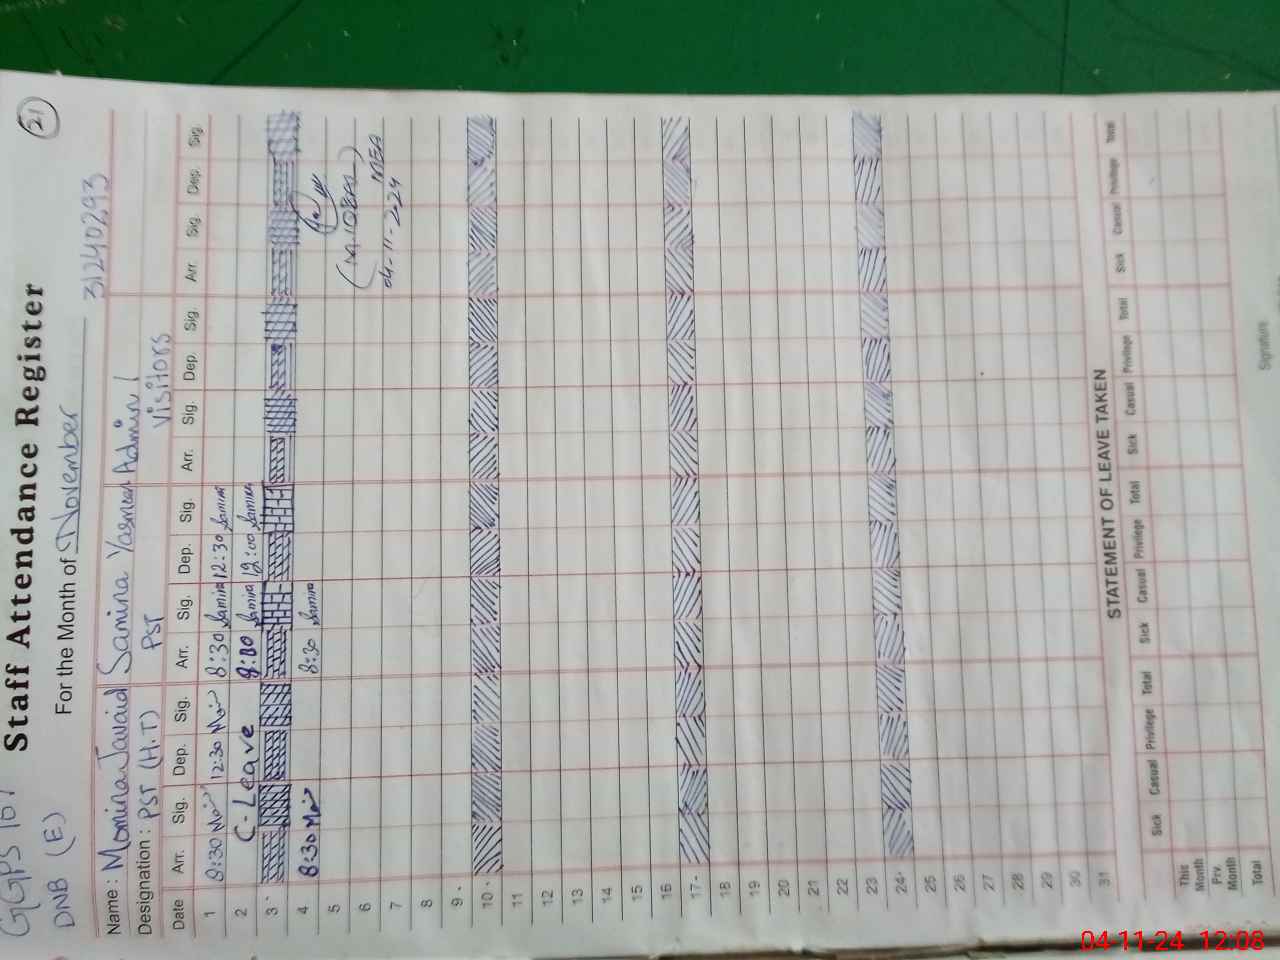 Staff Attendance Register
21
GGPS 167
DNB (E)
For the Month of November
31240293
Name : Momina Javaid Samina Yasmeen Admin /
Designation : PST (H.T) PST Visitors
Date Arr. Sig. Dep. Sig. Arr. Sig. Dep. Sig. Arr. Sig. Dep. Sig. Arr. Sig. Dep. Sig.
1 8:30 12:30 8:30 Samina 12:30 Samina
2 C-Leave 8:30 Samina 12:00 Samina
3
4 8:30 8:30 Samina
5
6
7 04-11-2024 MEA
8
9
10
11
12
13
14
15
16
17
18
19
20
21
22
23
24
25
26
27
28
29
30
31
STATEMENT OF LEAVE TAKEN
Sick Casual Privilege Total Sick Casual Privilege Total Sick Casual Privilege Total Sick Casual Privilege Total
This Month
Prv. Month
Total
Signature
04-11-24 12:08